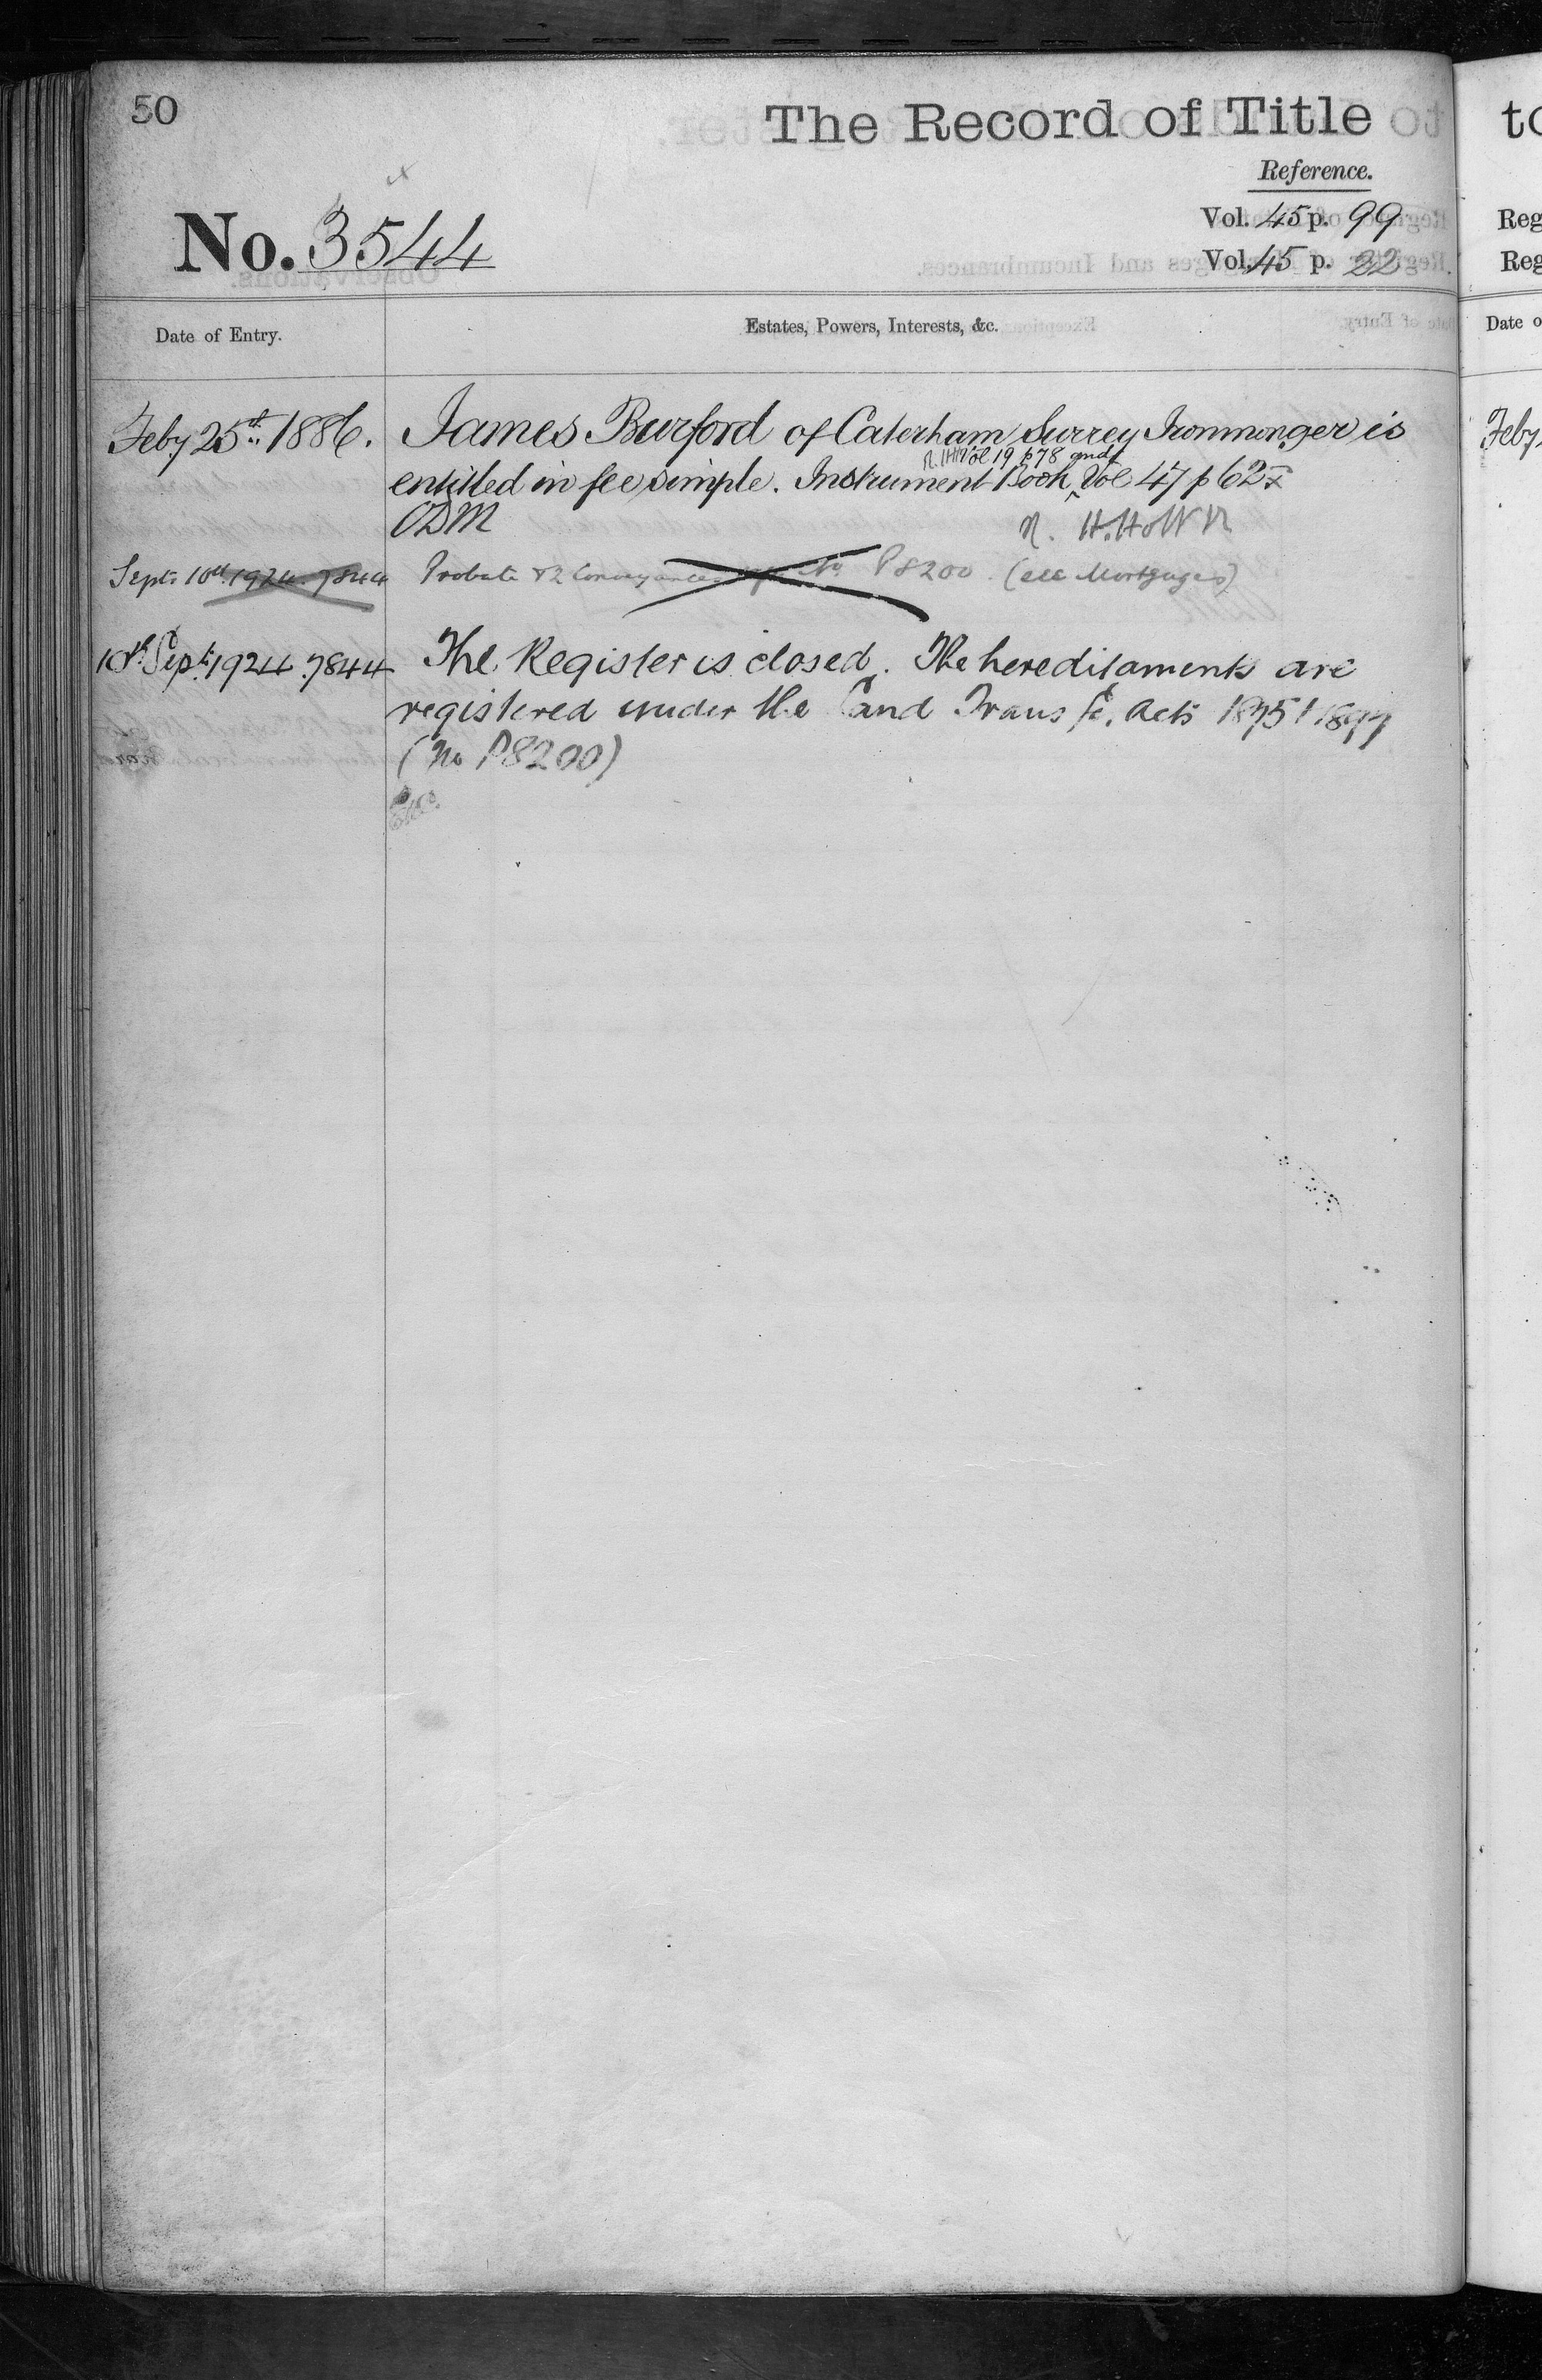 50
The Record of Title
Reference.
No. 3544
Vol. 45 p. 99
Vol. 45 p. 22
Date of Entry.
Estates, Powers, Interests, &c.
Feby 25th 1886.
James Burford of Caterham Surrey Ironmonger is
Vol 19 p 78 and
entitled in fee simple. Instrument Book Vol 47 p 62
ODM
Sept: 10th 1924. 7844
Probate & 2 Conveyances No P8200. (see Mortgages)
10th Sept: 1924. 7844
The Register is closed. The hereditaments are
registered under the Land Transfer Acts 1875 & 1897
(No P8200)
to
Reg
Reg
Date o
Feby